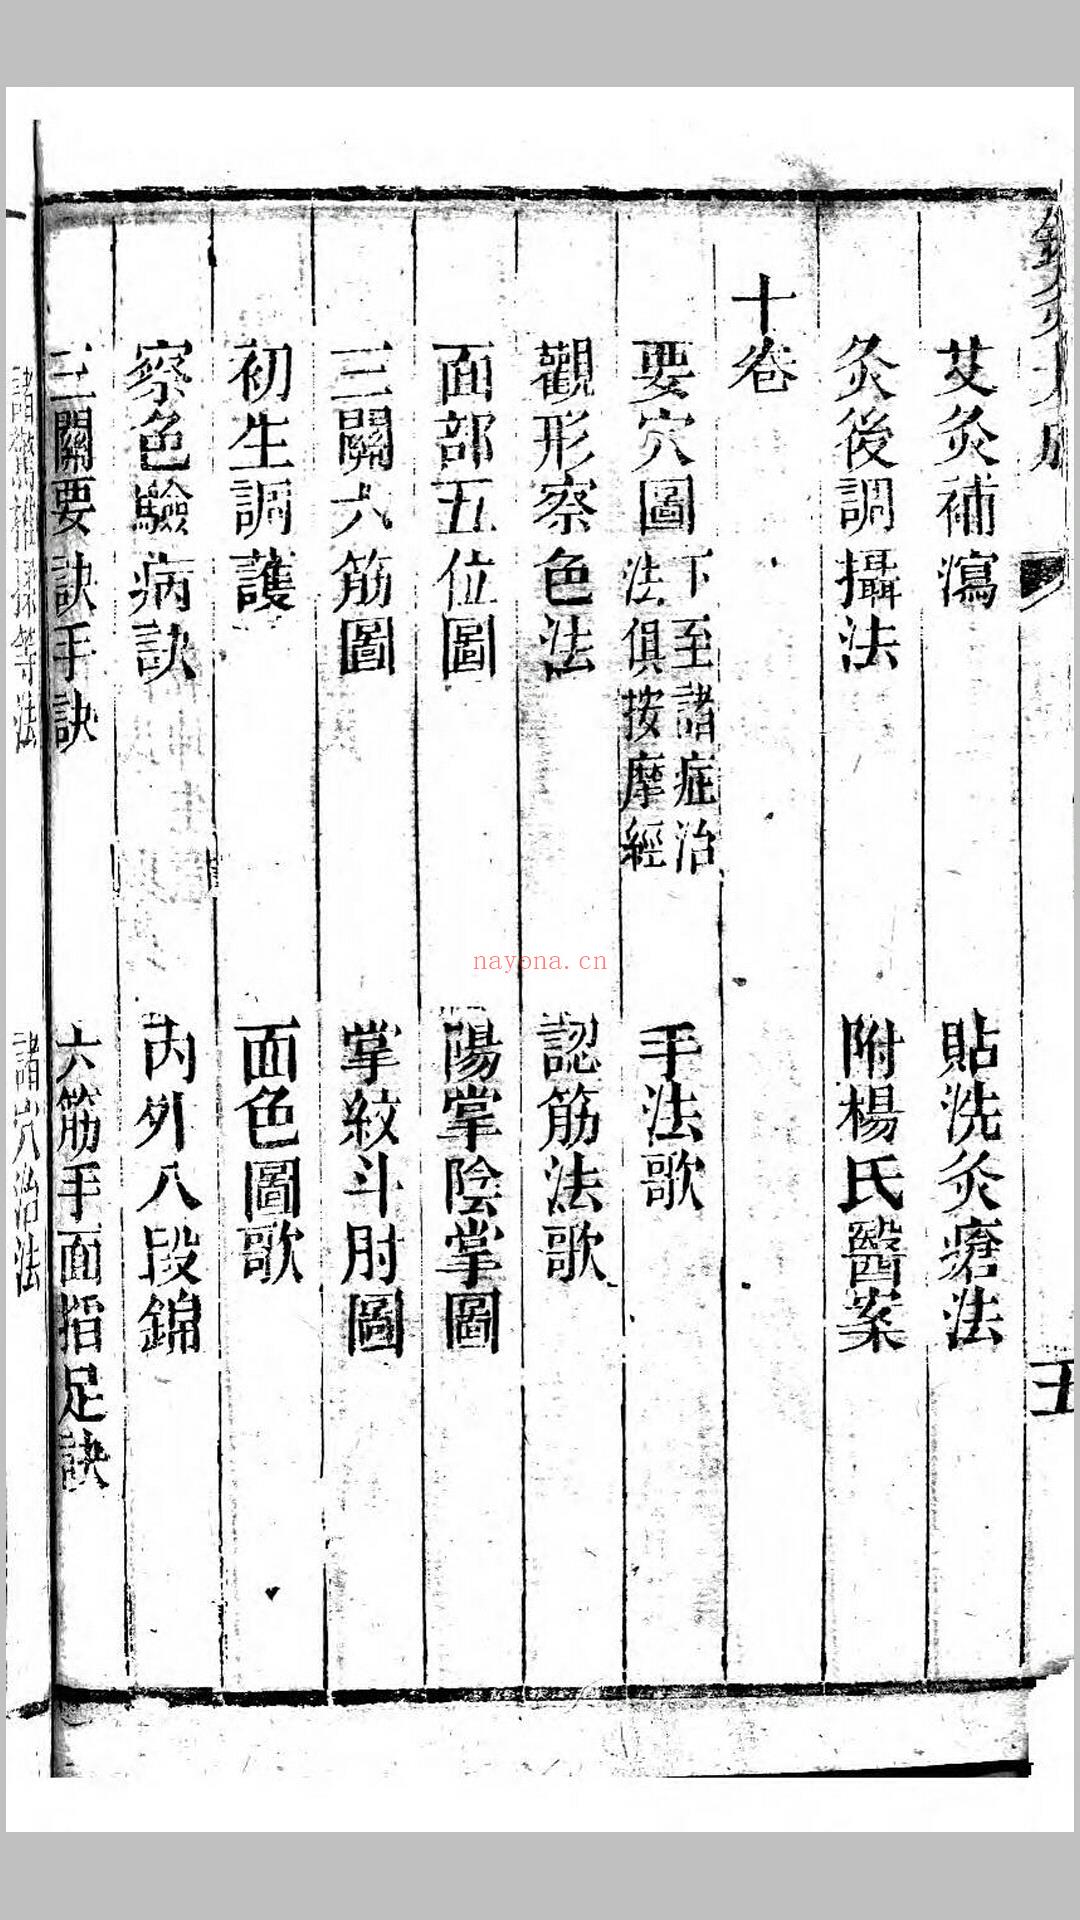 艾灸補瀉 貼洗灸瘡法
灸後調攝法 附楊氏醫案
十卷
要穴圖 下至諸症治法俱按摩經 手法歌
觀形察色法 認筋法歌
面部五位圖 陽掌陰掌圖
三關六筋圖 掌紋斗肘圖
初生調護 面色圖歌
察色驗病訣 內外八段錦
三關要訣手訣 六筋手面指足訣
諸驚推揉等法 諸穴治法
nayona.cn